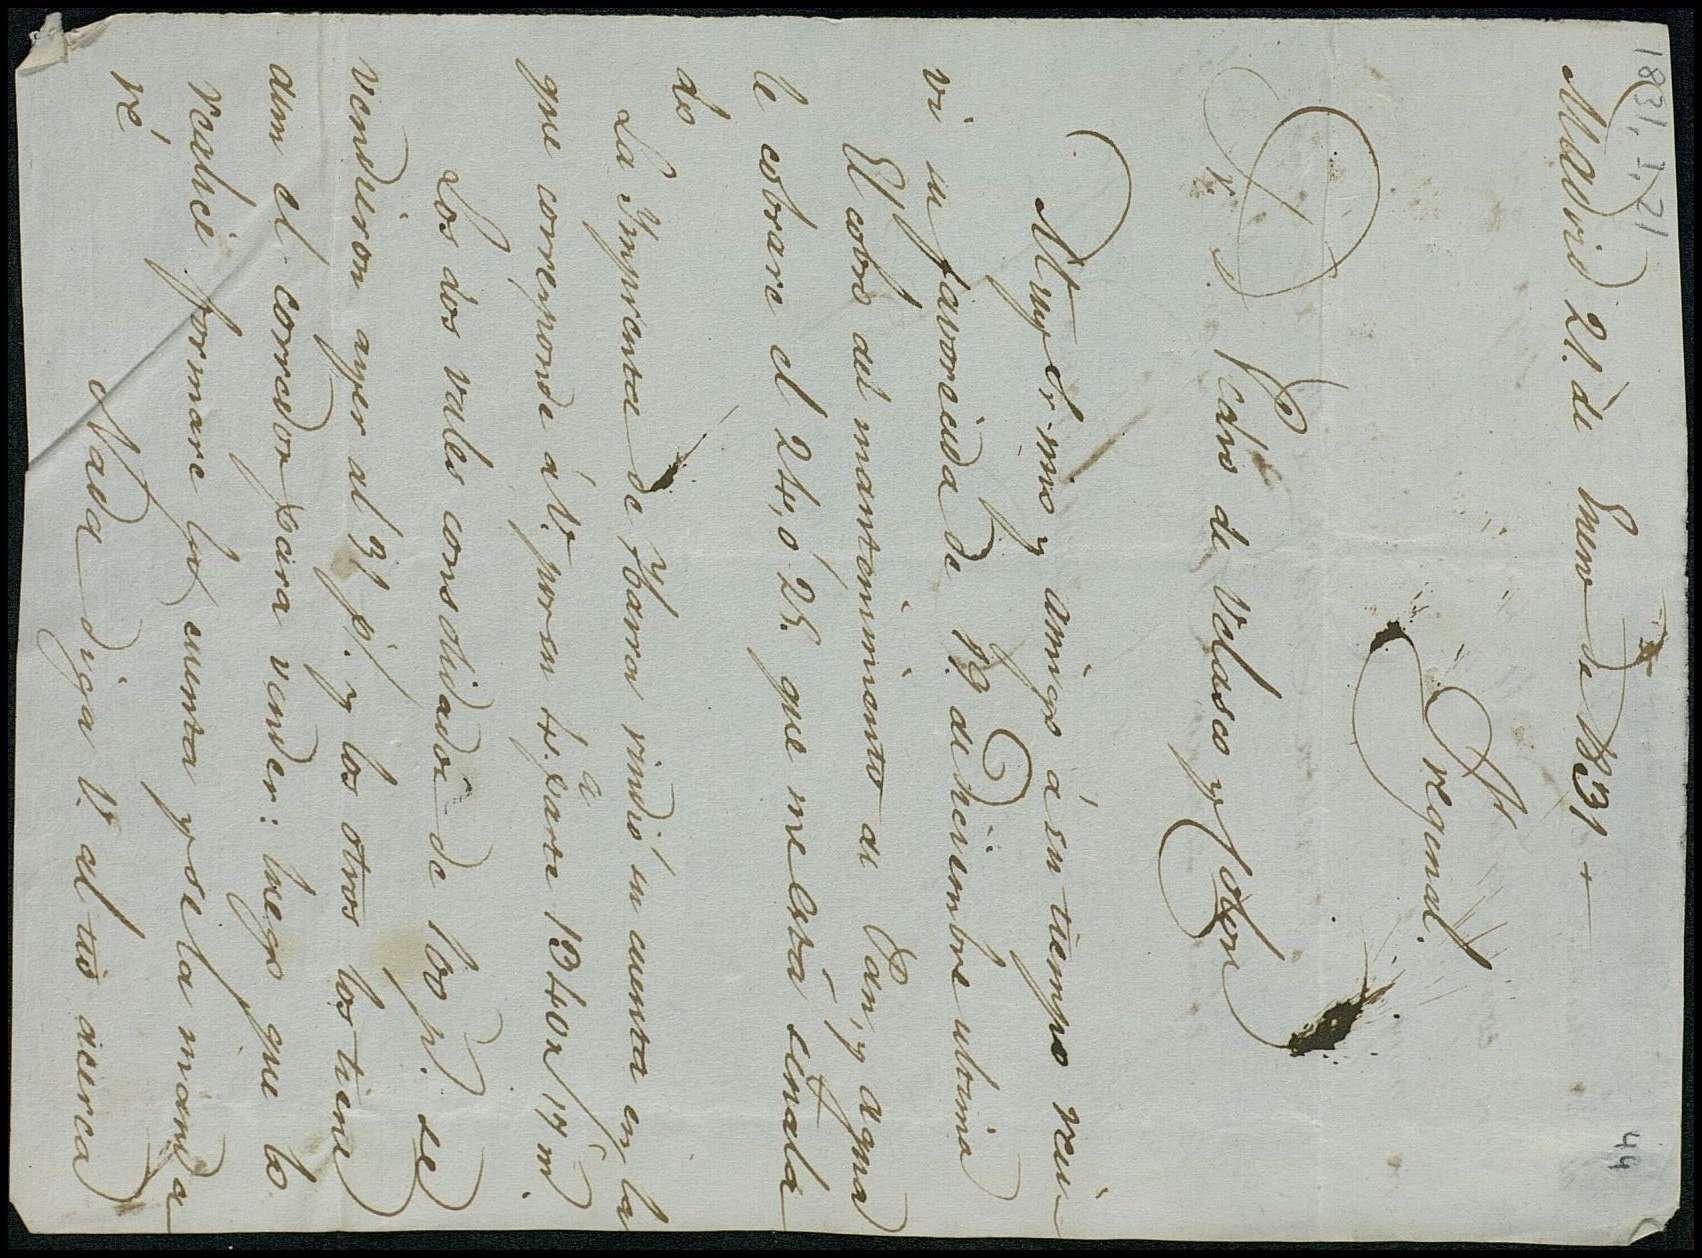 1831, I, 21
44
Madrid 21. de Enero de 1831 +
Fregenal.
Sr. D. Pedro de Velasco y
Muy Sr. mio y amigo á su tiempo reci
vi su favorecida de 19 de Diciembre ultimo
El cobro del mantenimiento de Pan, y agua
le cobrare el 24, ó 25. que me está senala
do
La Imprenta de Ybarra rindió su cuenta en la
que corresponde á V. por su 4.ª parte 1340 17 m.
Los dos vales consolidados de 100 p. se
vendieron ayer al 31 p. y los otros los tiene
aun el corredor para vender: luego que lo
realice formare la cuenta y se la manda
ré
Nada diga V. al tio acerca